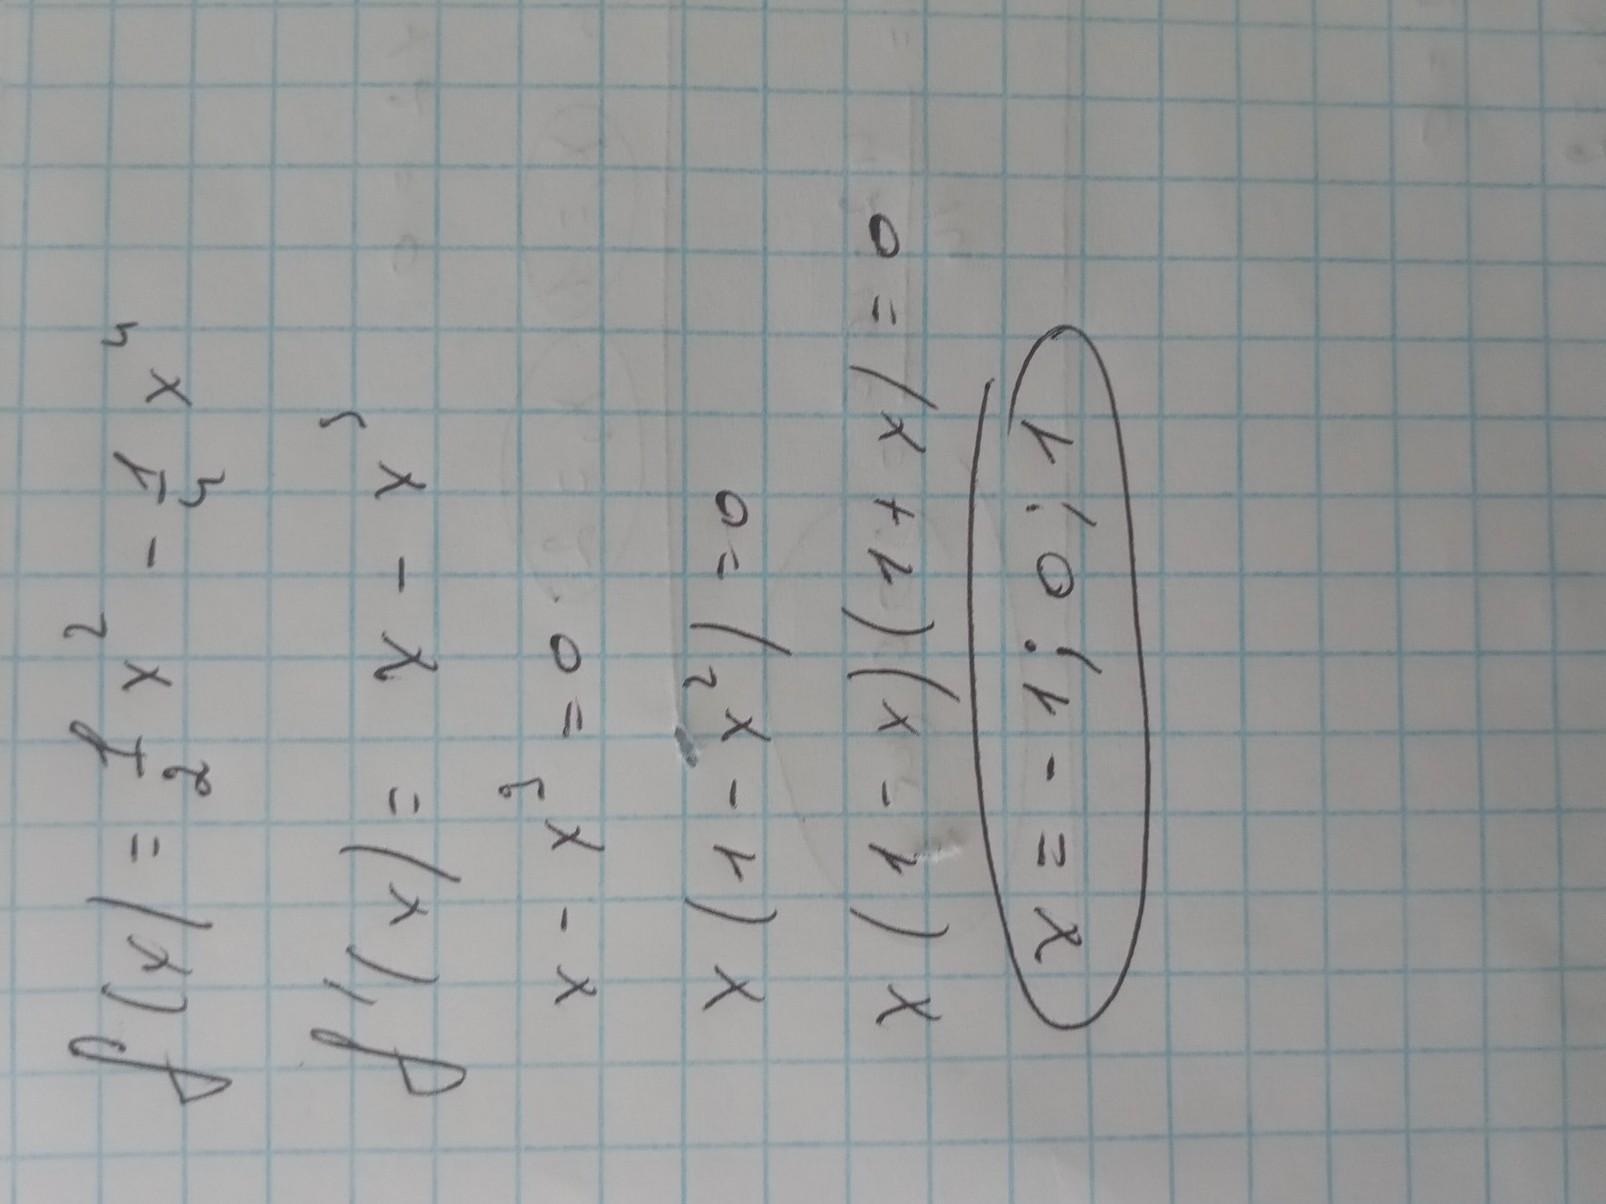 f(x) = 1/2 x² - 1/4 x⁴
f'(x) = x - x³
x - x³ = 0
x(1 - x²) = 0
x(1 - x)(1 + x) = 0
x = -1; 0; 1